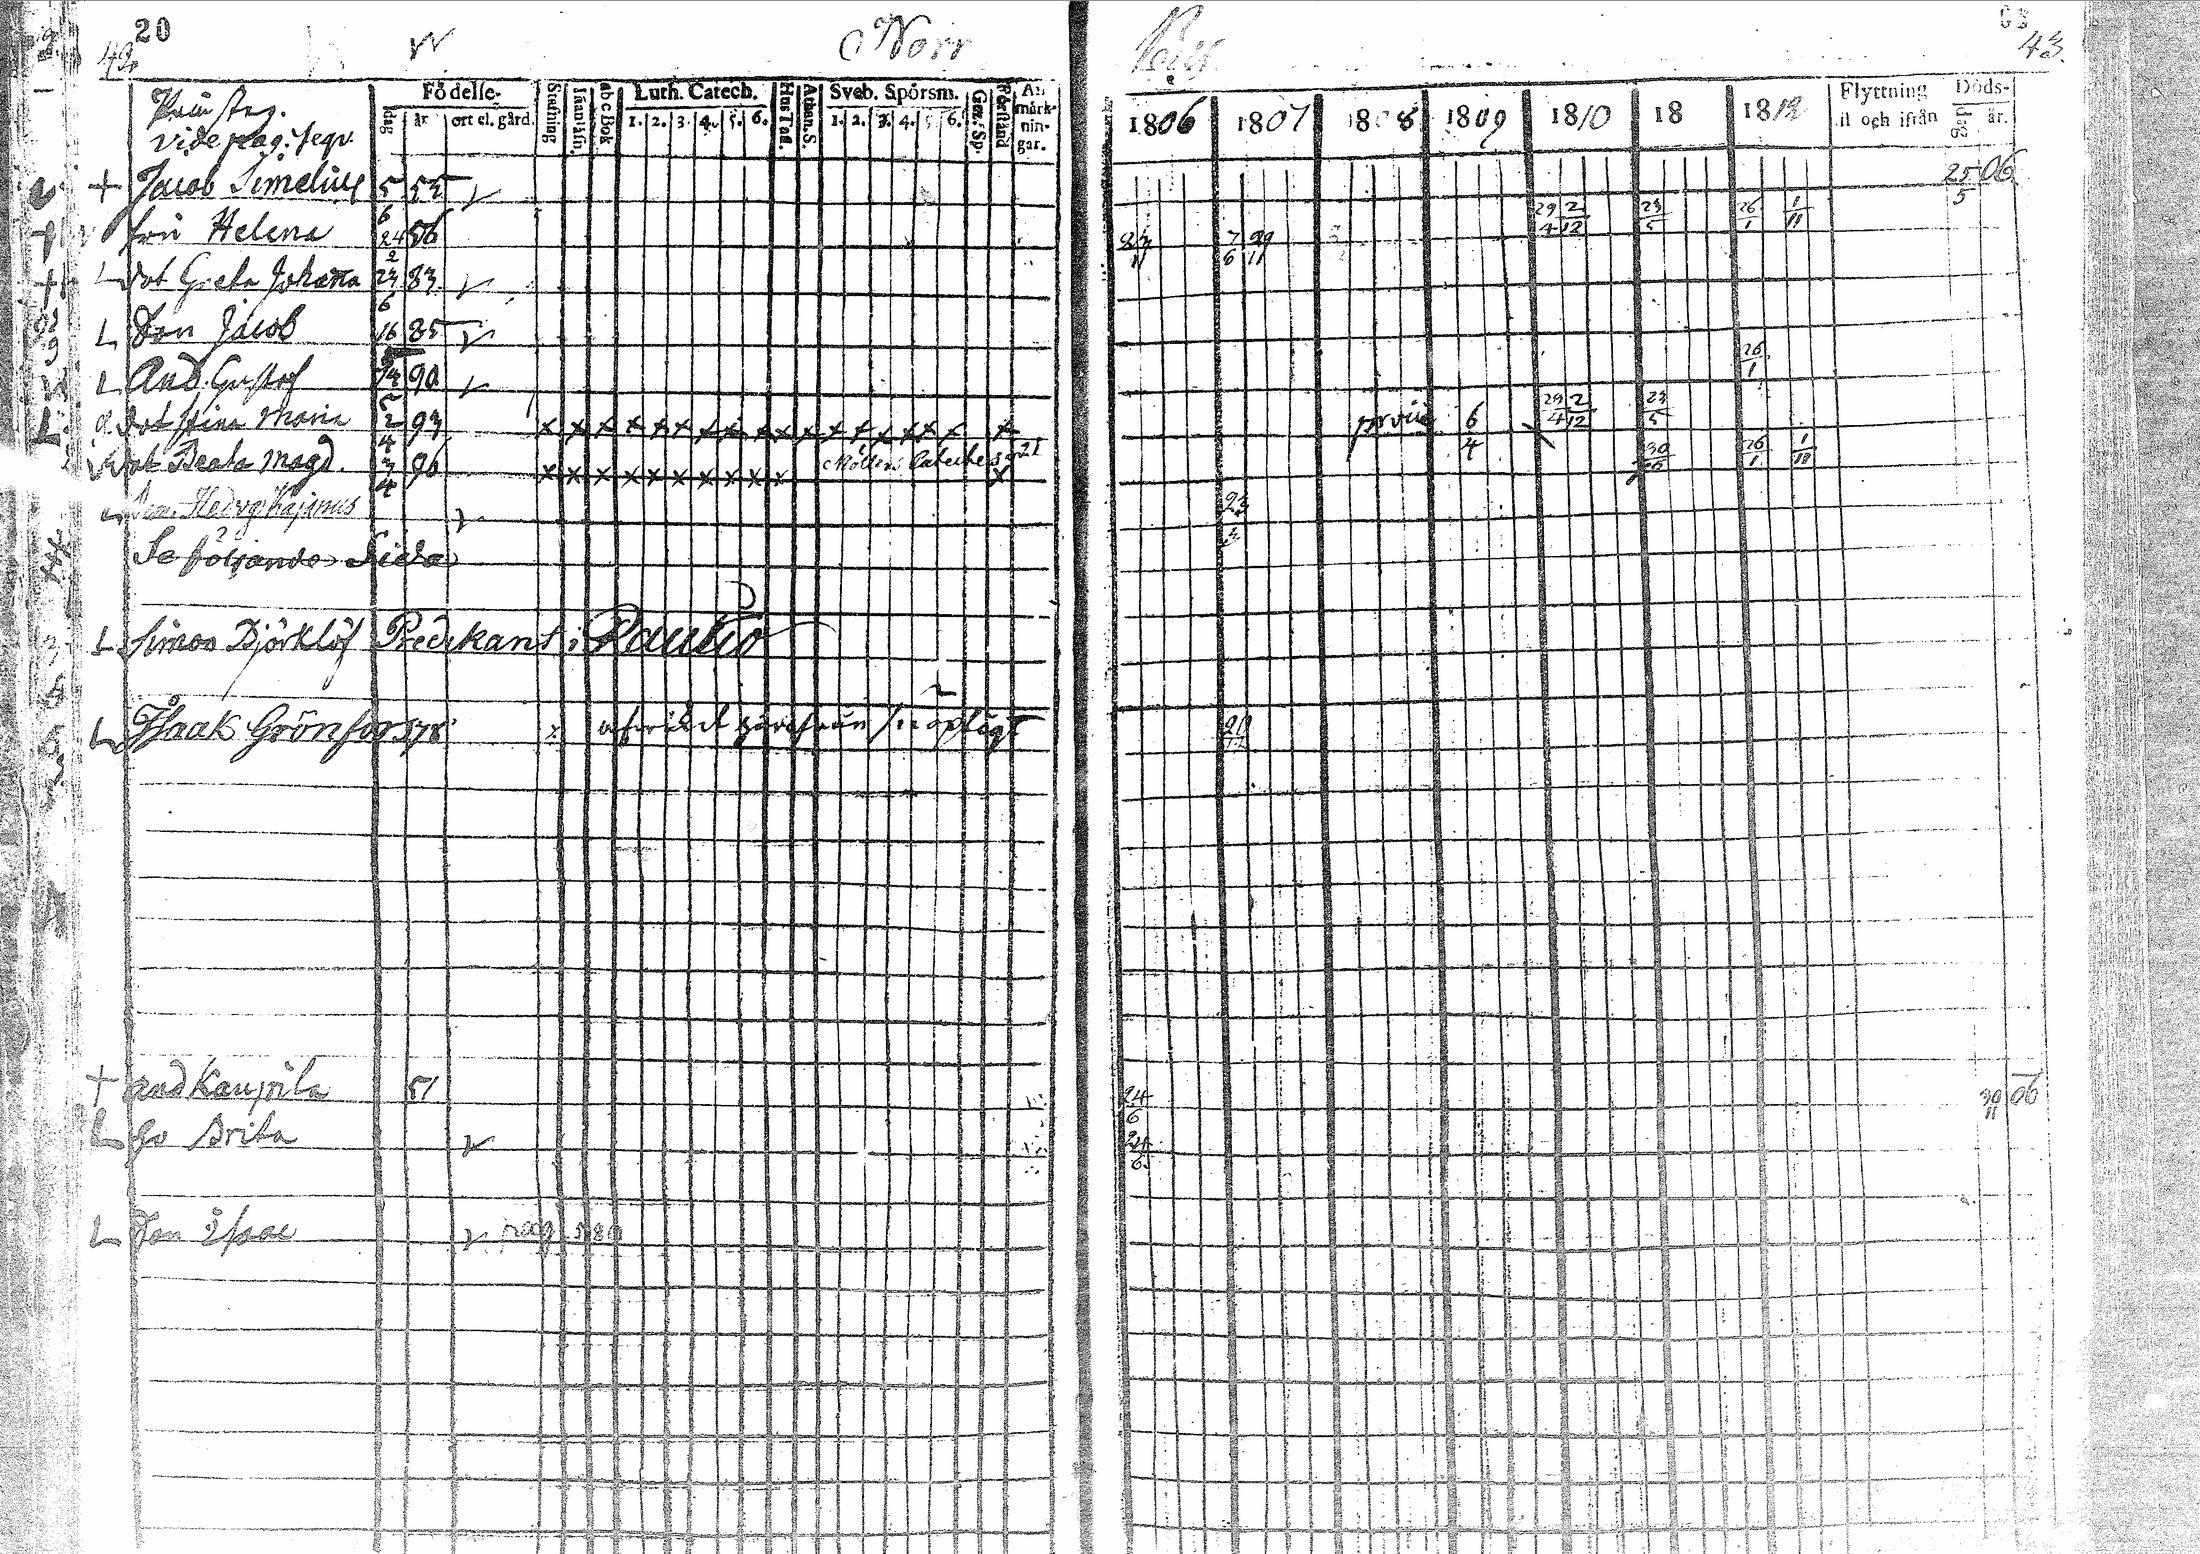 20
42.
Norr
43
Födelse-
dag år ort el. gård.
Stafning
Innanläsn.
abcBok
Luth. Catech.
1. 2. 3. 4. 5. 6.
Hus Tafl.
Athan. S.
Sveb. Spörsm.
1. 2. 3. 4. 5. 6.
Gen. Sp.
Förstånd
An märk- nin- gar.
1806 1807 1808 1809 1810 18 1812
Flyttning
til och ifrån
Döds-
dag år.
vide pag: seqv.
+ Jacob Simelius 5/6 55 25/5 06
fru Helena 24/2 56 7/6 29/11 29/4 2/12 23/5 26/1 1/11
L dot Greta Johana 23/6 83
L Son Jacob 16 85
L And. Gustaf 90 26/1
dot Stina Maria 2/4 93 x x x x x x x x x x x x x x x x x x 6/4 29/4 2/12 23/5
dot Beata Magd. 3/4 96 x x x x x x x x x x x 21 30 26/1 1/11
Hedvig Kajanus
Se följande Sida
L Simon Björklöf Predikant i Rautio
L Isaak Grönfors 78
+ And Kaupila 51 24/6 30/11 06
L hu Brita 24/6
L Son Isaac pag 580